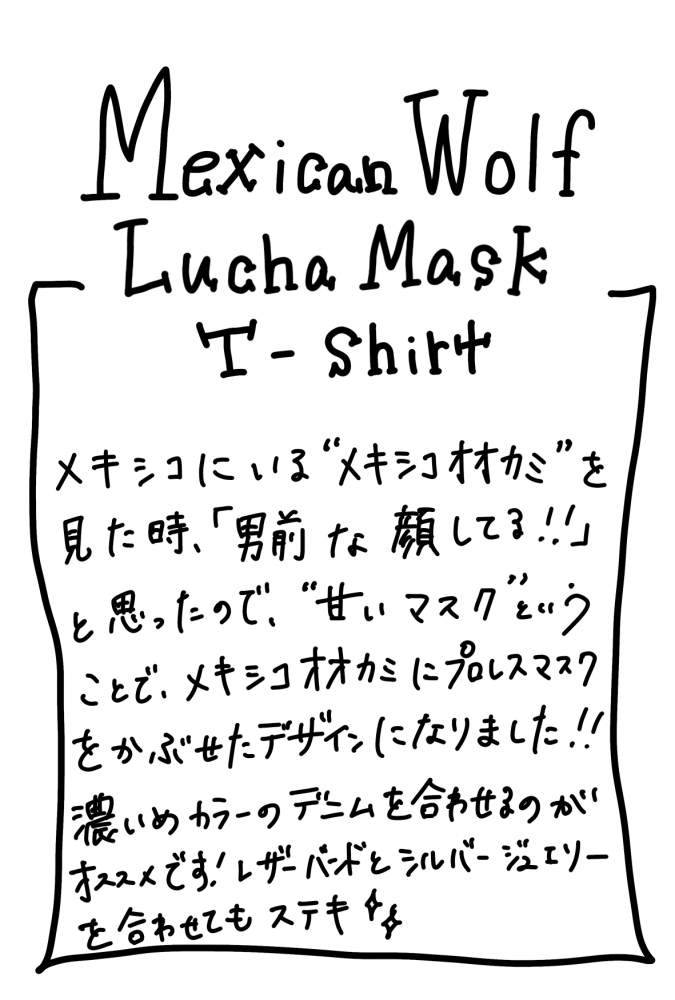 Mexican Wolf
Lucha Mask
T-Shirt
メキシコにいる“メキシコオオカミ”を
見た時、「男前な顔してる!!」
と思ったので、“甘いマスク”という
ことで、メキシコオオカミにプロレスマスク
をかぶせたデザインになりました!!
濃いめカラーのデニムを合わせるのが
オススメです!レザーバンドとシルバージュエリー
を合わせてもステキ